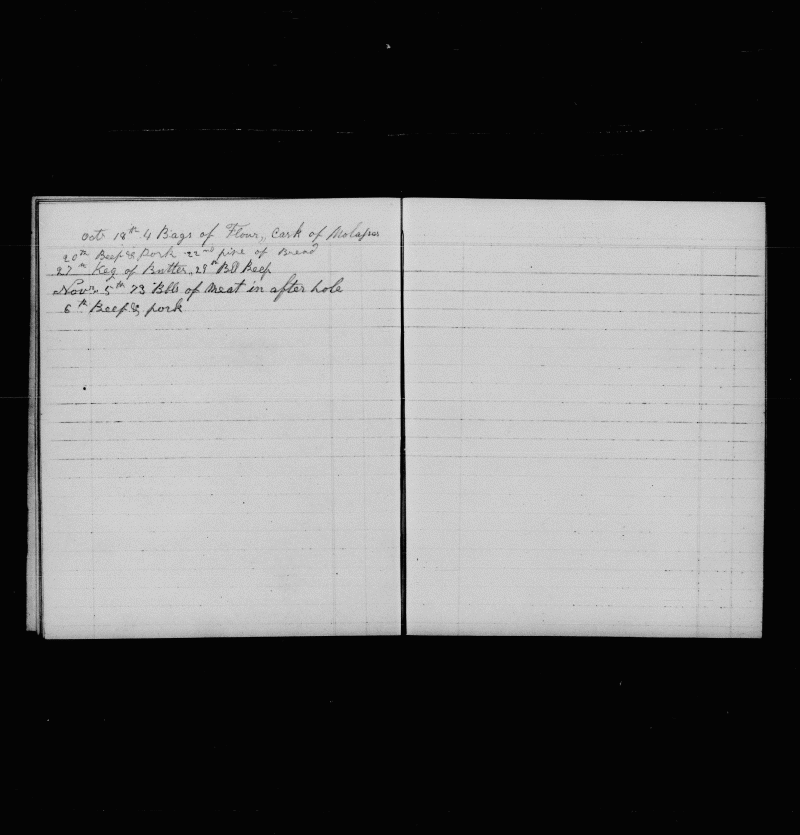 Oct 18th 4 Bags of Flour,, Cask of Molasses
20th Beef & Pork 22nd pipe of Bread
27th Keg of Butter,, 29th Bll Beef
Nov 5th 23 Blls of meat in after hole
6th Beef & pork